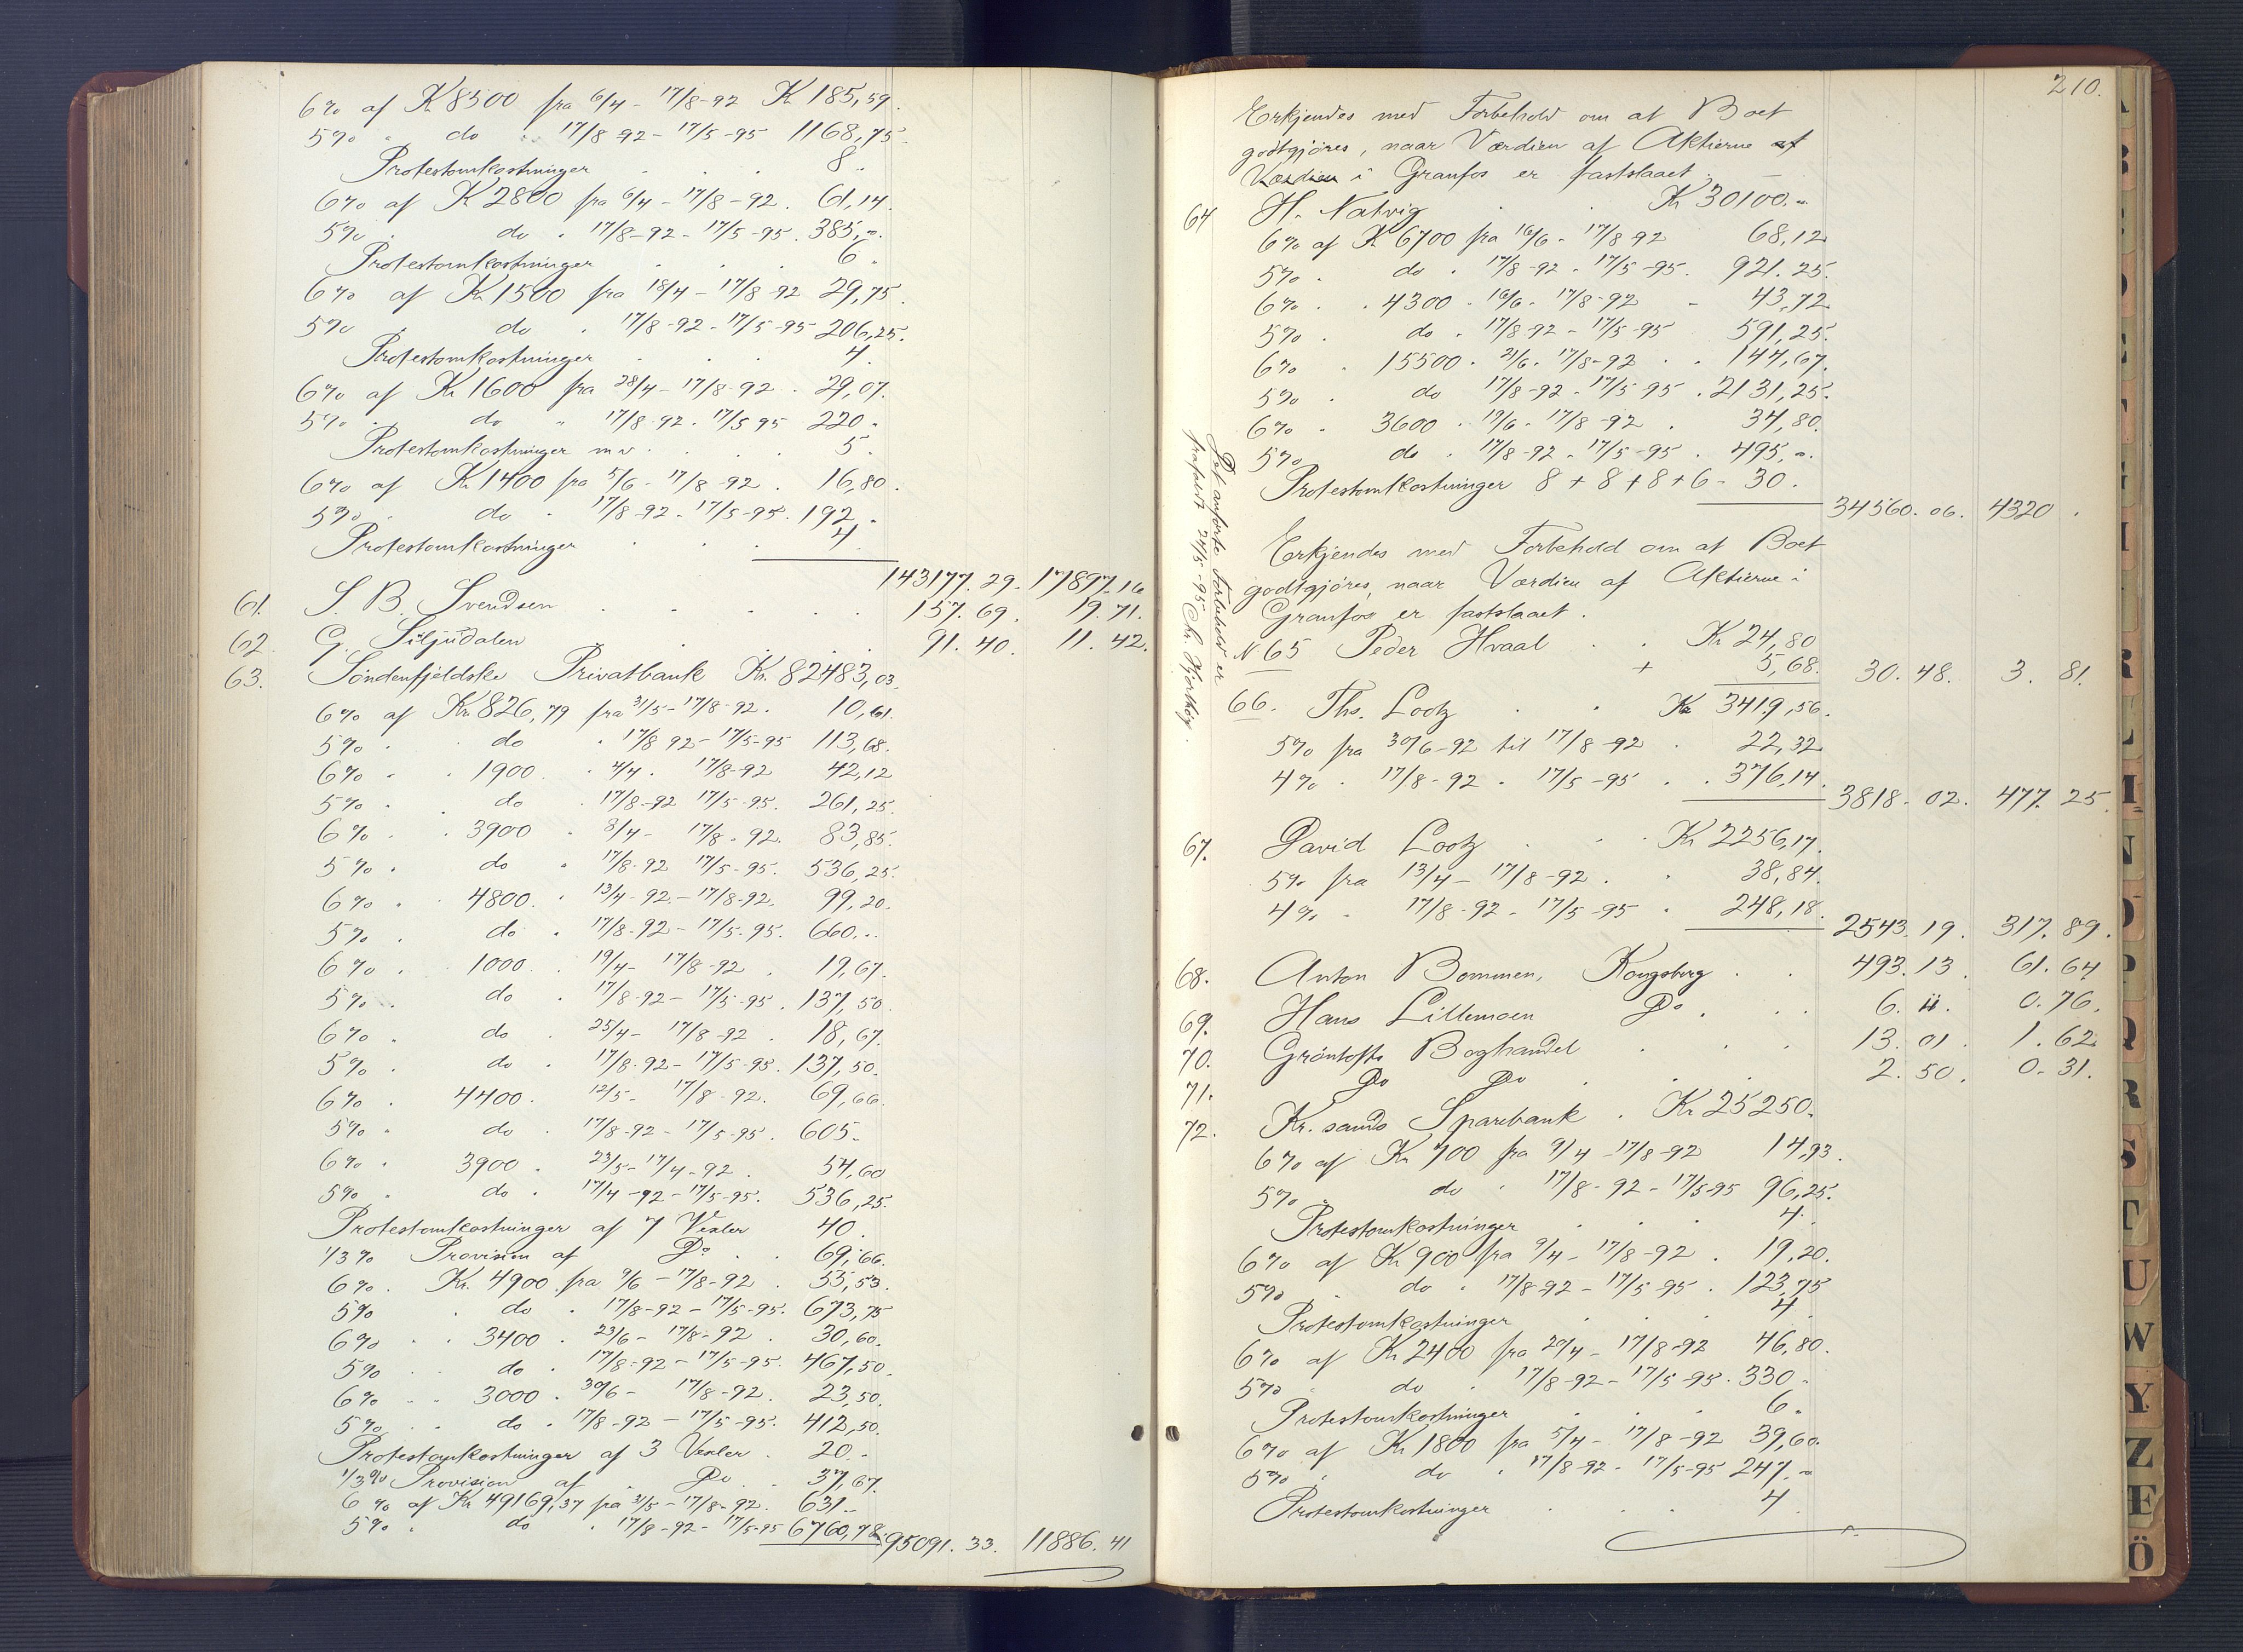 6% af Kr 8500 fra 6/4 - 17/8-92 Kr 185,59.
5% " do " 17/8 92 - 17/5 -95 1168,75.
Protestomkostninger . . . 8 "
6% af Kr 2800 fra 6/4 - 17/8 - 92 . 61,14.
5% " do " 17/8-92 - 17/5 -95 . 385, ".
Protestomkostninger . . . 6 "
6% af Kr 1500 fra 18/4 - 17/8 - 92 29,75.
5% " do " 17/8 -92 - 17/5 -95 206,25.
Protestomkostninger . . . 4.
6% af Kr 1600 fra 28/4 - 17/8 92 . 29,07.
5% " do " 17/8 92 . 17/5 95 220 "
Protestomkostninger mv . . . . 5.
6% af Kr 1400 fra 5/6 - 17/8 -92 . 16,80.
5% " do " 17/8 -92 - 17/5 -95. 192 "
Protestomkostninger . . . 4.
143177. 29. 17897. 16
61. S. B. Svendsen . . . . . 157. 69. 19. 71.
62. G. Siljudalen . . . 91. 40. 11. 42.
63. Söndenfjeldske Privatbank Kr. 82483,03.
6% af Kr. 826,79 fra 31/5 - 17/8 -92. 10,61.
5% . do . 17/8 92 - 17/5 -95 113,68.
6% " . 1900 . 4/4 . 17/8-92 42,12
5% . . do . 17/8-92 17/5 -95. 261,25.
6% . . 3900 . 8/4 - 17/8 - 92. 83,85.
5% . do . 17/8-92 17/5 -95. 536,25.
6% . . 4800. . 13/4 -92. - 17/8-92. 99,20.
5% . do . 17/8-92 - 17/5 -95. 660. "
6% . 1000 . 19/4 - 17/8 -92 . 19,67.
5% . do . 17/8-92 - 17/5 -95 . 137,50.
6% . do . 25/4 - 17/8 -92 . 18,67.
5% . do . 17/8-92 - 17/5 -95. 137,50.
6% . 4400. 12/5 - 17/8 -92. 69,66.
5% . do . 17/8-92 - 17/5 -95. 605. "
6% . 3900 . 23/5 - 17/4 -92 . 54,60
5% " do . 17/4 -92 - 17/5 -95. 536,25.
Protestomkostninger af 7 Vexler 40.
1/3 % Provision af Do . . 69,66.
6% . Kr. 4900 fra 9/6 - 17/8-92 . 55,53.
5% . do . 17/8-92 - 17/5 -95. 673,75
6% . . 3400 . 23/6 - 17/8-92 . 30,60.
5% . do . 17/8-92 - 17/5 -95. 467,50.
6% . . 3000 . 30/6 - 17/8-92. 23,50.
5% . . do . 17/8-92 - 17/5 -95. 412,50.
Protestomkostninger af 3 Vexler . 20. "
1/3 % Provision af . Do . . 37,67.
6 % af Kr 49169,37 fra 31/5 - 17/8-92. 631. "
5% . do . 17/8 -92 - 17/5-95 6760,78. 95091. 33. 11886. 41
210.
Erkjendes med Forbehold om at Boet
godtgjöres, naar Værdien af Aktierne af
Værdien i Granfos er fastslaaet.
64 H. Natvig . . Kr 30100. "
6% af Kr 6700 fra 16/6 - 17/8 92 68,12
5% . do . 17/8 -92 . 17/5 -95. 921. 25.
6% . . 4300 . 16/6 . 17/8-92 - 43,72
5% . do . 17/8-92 - 17/5 -95 591,25.
6% . 15500 . 21/6 . 17/8-92 . . 144,67.
5% . do 17/8-92 . 17/5 95 . 2131,25.
6% . 3600 . 19/6 . 17/8 -92 . 34,80.
5% do . 17/8-92 . 17/5 -95 . 495, ".
Protestomkostninger 8 + 8 + 8 + 6 - 30.
34560. 06. 4320 .
Erkjendes med Forbehold om at Boet
godtgjöres, naar Værdien af Aktierne i
Granfos er fastslaaet.
Det anförte Forbehold er
frafaldt 24/5 -95 Chr. Hjorthöy.
N 65 Peder Hvaal . . Kr 24,80
+ 5,68. 30. 48. 3. 81.
66. Ths. Lootz . . Kr 3419,56.
5% fra 30/6-92 til 17/8 -92 . 22,32
4% . 17/8 - 92 . 17/5 -95 . . 376,14.
3818. 02. 477. 25
67. David Lootz . . . Kr 2256,17.
5% fra 13/4 - 17/8 -92 . . 38,84.
4% . 17/8 -92 . 17/5 -95 . 248,18.
2543. 19. 317. 89.
68. Anton Bommen, Kongsberg . . 493. 13. 61. 64
69. Hans Lillemoen Do . . . 6. 11. 0. 76.
70. Gröntofts Boghandel . . . 13. 01. 1. 62
71. Do Do . . . 2. 50. 0. 31.
72. Kr. sands Sparebank . Kr 25250.
6% af Kr 700 fra 9/4 - 17/8 -92 14,93.
5% do . 17/8 - 92 - 17/5-95 96,25.
Protestomkostninger . . . 4.
6% af Kr 900 fra 9/4 - 17/8 -92 . 19,20.
5% . do . 17/8-92 - 17/5 -95 . 123,75
Protestomkostninger . . . 4.
6% af Kr 2400 fra 20/4 - 17/8 -92 46,80.
5% . do . 17/8-92 - 17/5 -95. 330. "
Protestomkostninger . . . 6.
6% af Kr 1800 fra 5/4 - 17/8 -92 39,60.
5% . do . 17/8-92 - 17/5-95 247. "
Protestomkostninger . . . 4.